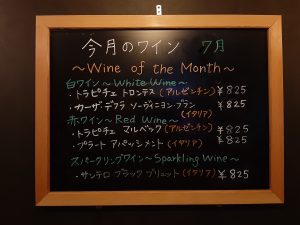 今月のワイン 7月
～Wine of the Month～
白ワイン～White Wine～
・トラピチェ トロンテス(アルゼンチン) ¥825
・カーザ・デフラ ソーヴィニヨン・ブラン ¥825
(イタリア)
赤ワイン～Red Wine～
・トラピチェ マルベック(アルゼンチン) ¥825
・プラート アパッシメント(イタリア) ¥825
スパークリングワイン～Sparkling Wine～
・サンテロ ブラック ブリュット(イタリア) ¥825